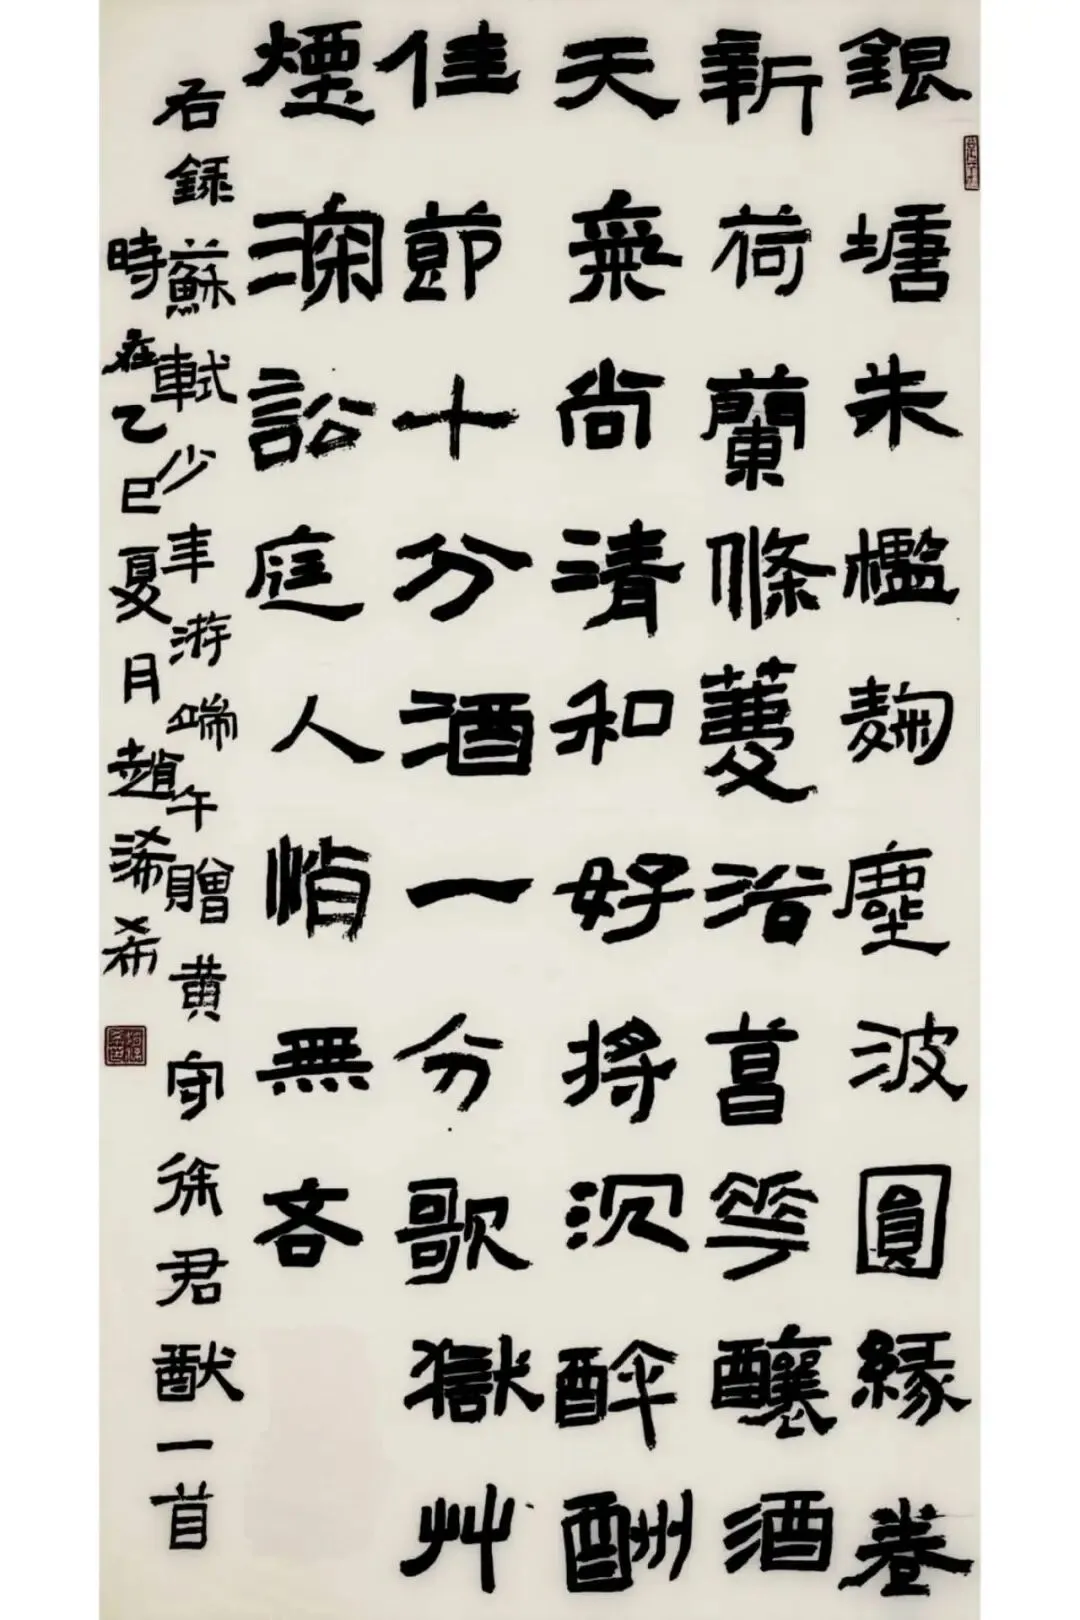 銀塘朱檻麹塵波圓緣卷
新荷蘭條薦浴菖華釀酒
天氣尚清和好將沉醉酬
佳節十分酒一分歌獄艸
煙深訟庭人悄無吝
右録蘇軾少年游端午贈黄守徐君猷一首
時在乙巳夏月趙浠希